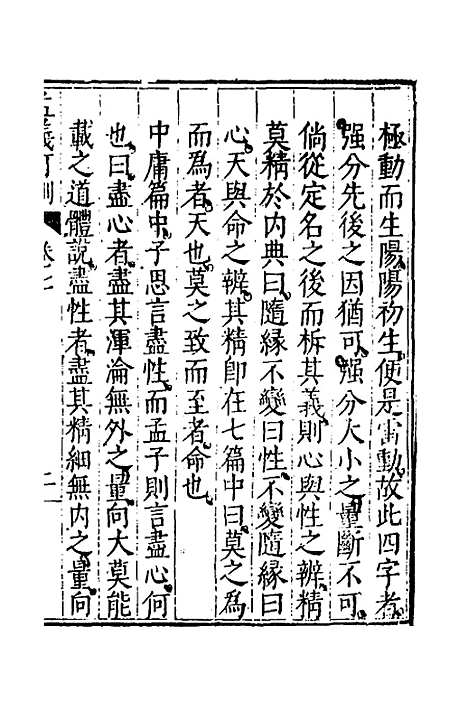 極動而生陽陽初生便是雷動故此四字者
强分先後之因猶可强分大小之量斷不可
倘從定名之後而柝其義則心與性之辨精
莫精於内典曰隨緣不變曰性不變隨緣曰
心天與命之辨其精即在七篇中曰莫之爲
而爲者天也莫之致而至者命也
中庸篇中子思言盡性而孟子則言盡心何
也曰盡心者盡其渾淪無外之量向大莫能
載之道體說盡性者盡其精細無内之量向
卷七